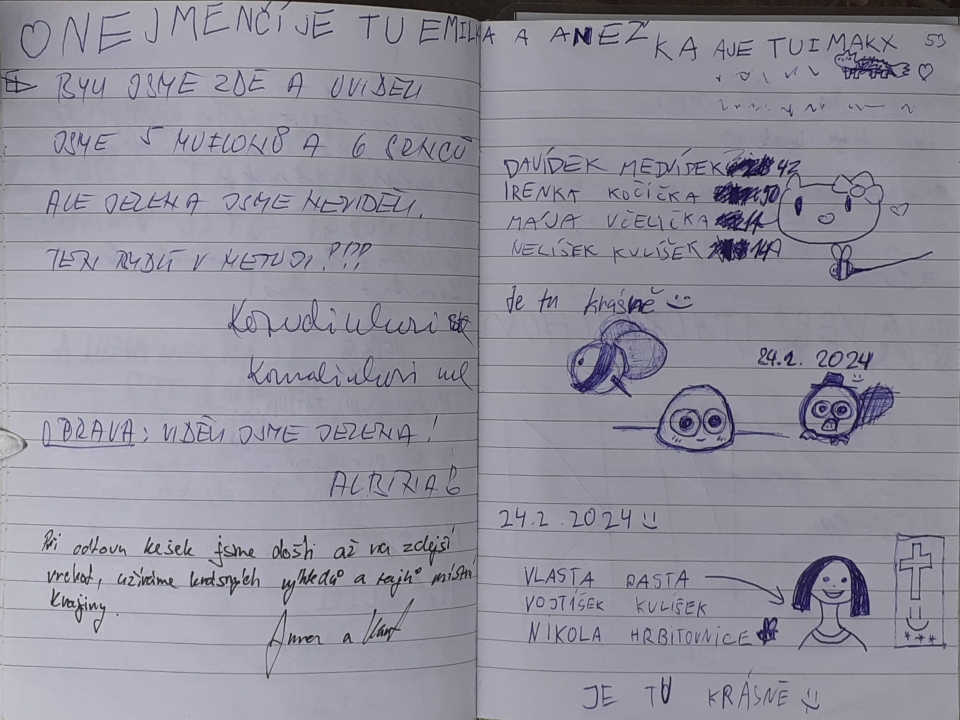 ♡ ONEJMENČÍ JE TU EMILKA A ANEŽKA AJE TU I MAKX
53
BYLI JSME ZDE A VIDĚLI
JSME 5 MUFLONŮ A 6 SRNCŮ
ALE JELENA JSME NEVIDĚLI.
V METUJI!???
OPRAVA: VIDĚLI JSME JELENA!
Při odlovu kešek jsme došli až na zdejší
vrchol, užíváme krásných výhledů a tajů místní
krajiny.
DAVÍDEK MEDVÍDEK 42
IRENKA KOČIČKA 50
MÁJA VČELIČKA 14
NELÍSEK KULÍSEK 14A
Je tu krásně
24.2. 2024
24.2.2024
VLASTA PASTA
VOJTÍŠEK KULÍŠEK
NIKOLA HRBITOVNICE
JE TU KRÁSNĚ